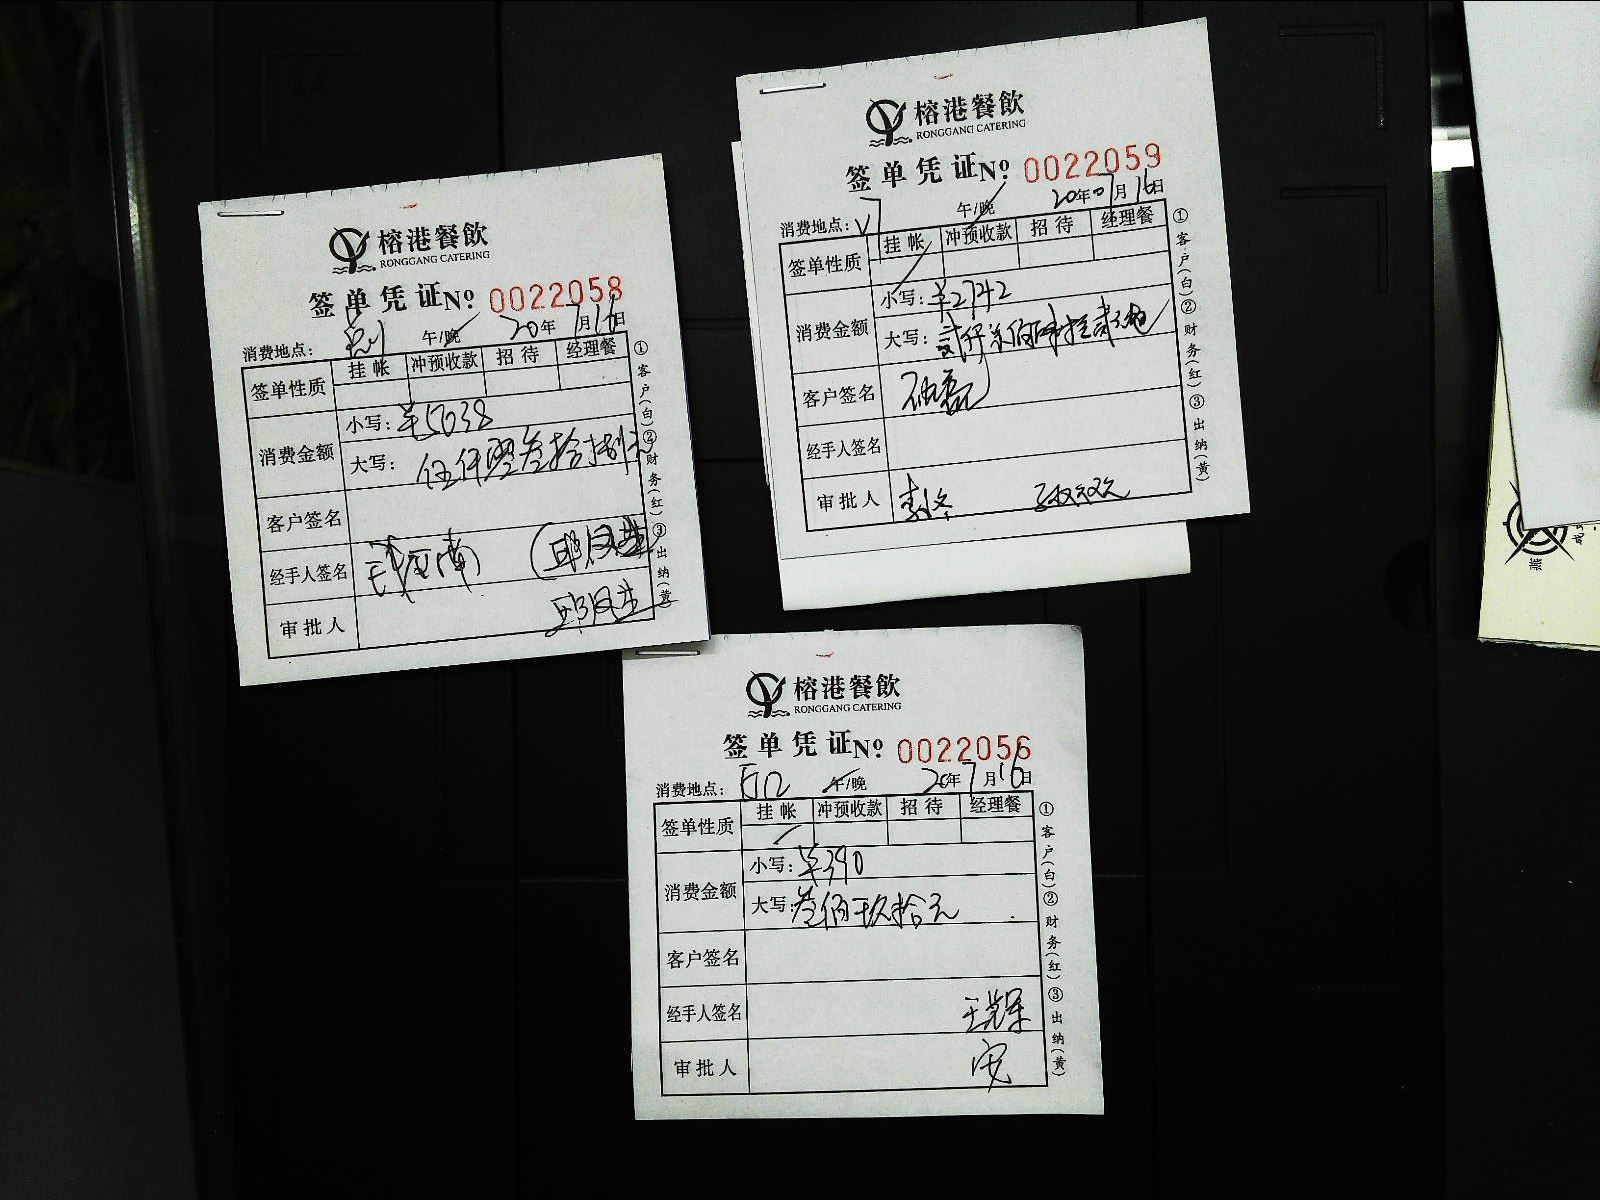 榕港餐飲
RONGGANG CATERING
签单凭证No 0022058
消费地点: 午/晚 20年7月16日
签单性质 挂帐 冲预收款 招待 经理餐
消费金额 小写: ¥5038
大写: 伍仟零叁拾捌元
客户签名
经手人签名
审批人
①客户(白)②财务(红)③出纳(黄)
榕港餐飲
RONGGANG CATERING
签单凭证No 0022059
消费地点: V7 午/晚 20年07月16日
签单性质 挂帐 冲预收款 招待 经理餐
消费金额 小写: ¥2742
大写: 贰仟柒佰肆拾贰元
客户签名
经手人签名
审批人
①客户(白)②财务(红)③出纳(黄)
榕港餐飲
RONGGANG CATERING
签单凭证No 0022056
消费地点: 午/晚 20年7月16日
签单性质 挂帐 冲预收款 招待 经理餐
消费金额 小写: ¥390
大写: 叁佰玖拾元
客户签名
经手人签名
审批人
①客户(白)②财务(红)③出纳(黄)